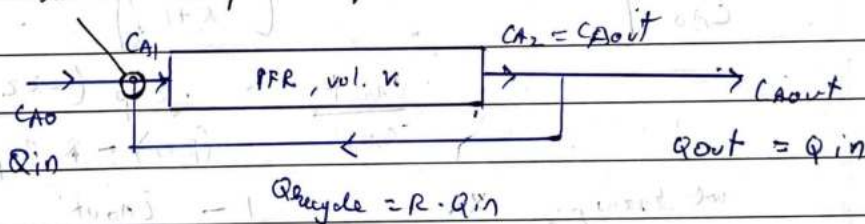 CA1
CA2 = CAout
PFR, vol. V.
CA0
CAout
Qin
Qout = Qin
Qrecycle = R·Qin